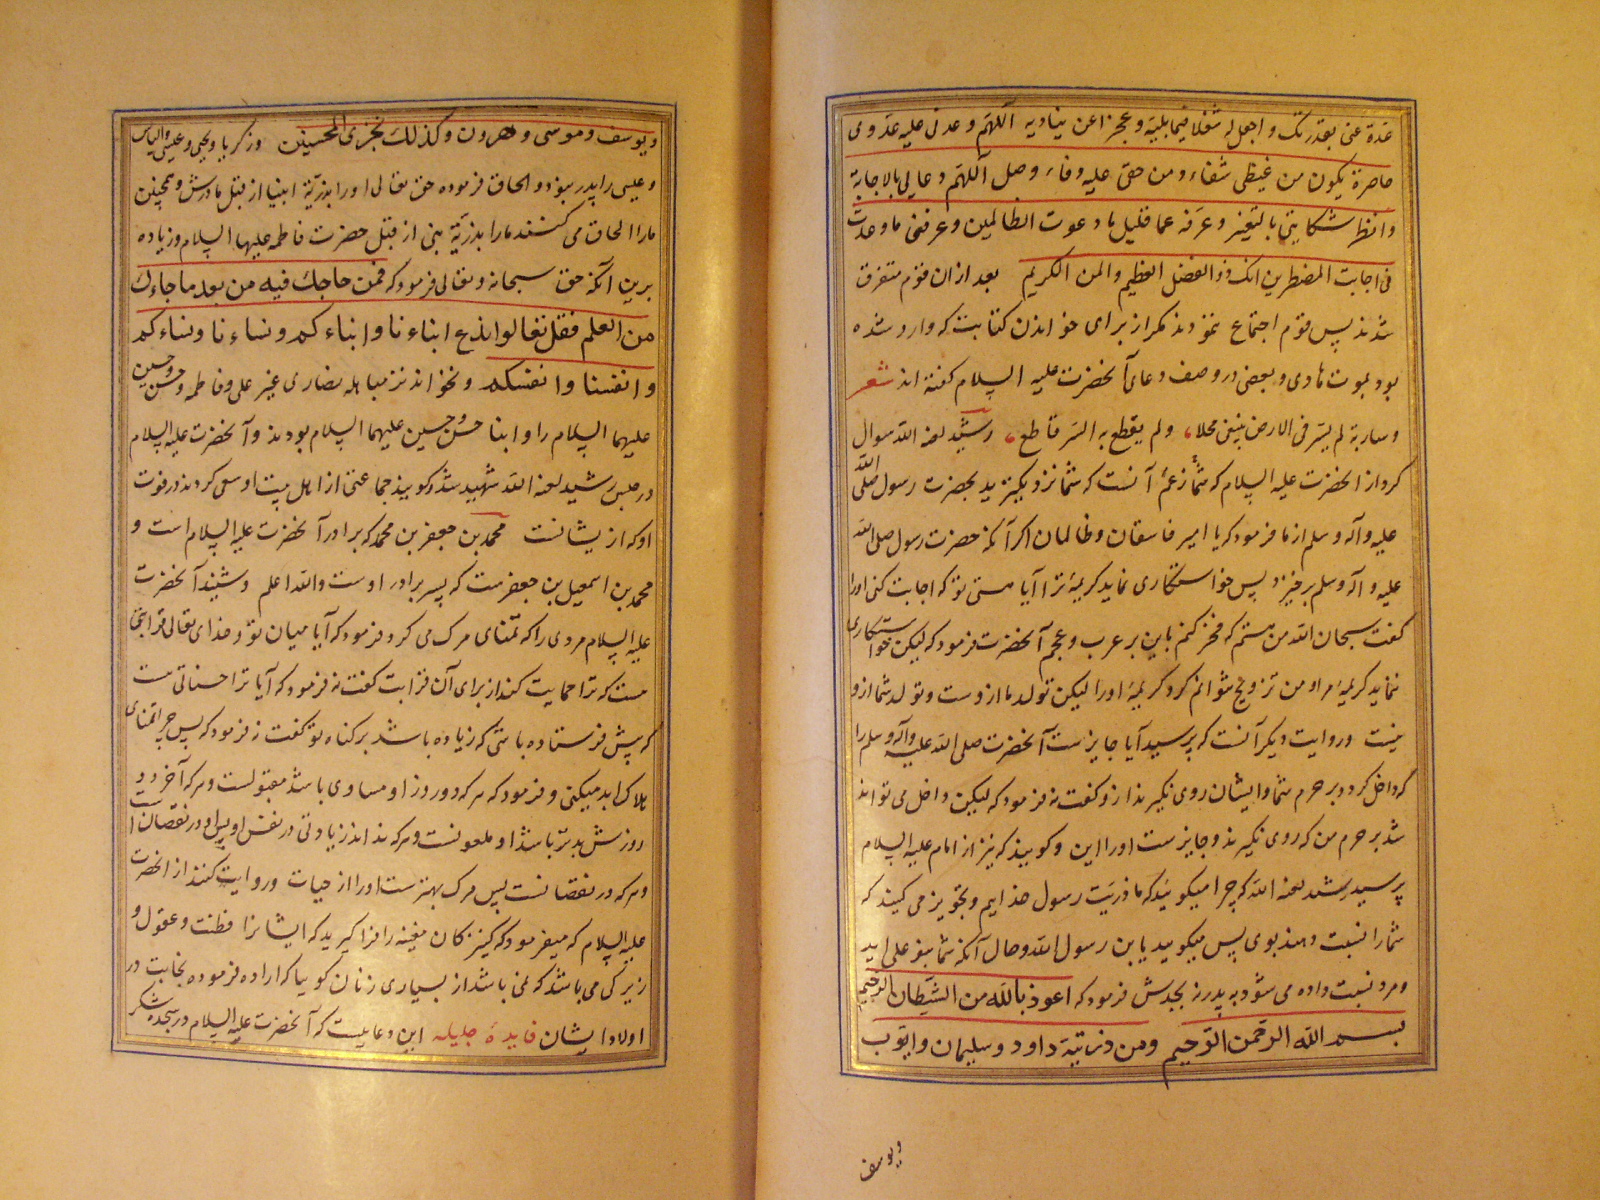 عدة عنی بقدرتک و اجعل له شغلا فیما یلیه و عجزا عن یناویه اللهم و عدنی علیه عدوی
حاضرة یکون من غیظی شفاء و من حقی علیه وفاء و صل اللهم دعایی بالاجابة
وانظم شکایتی بالتغییر و عرفه عما قلیل ما وعدت الظالمین و عرفنی ما وعدت
فی اجابت المضطرین انک ذوالفضل العظیم والمن الکریم بعد ازان قوم متفرق
شدند پس قوم اجتماع نمودند مکر از برای خواندن کتابت که وارد شده
بود بموت هادی و بعضی در وصف دعای آنحضرت علیه السلام کفته اند شعر
و ساریة لم یسر فی الارض یبتغی محلا، و لم یقطع به السر قاطع، رشید لعنه الله سوال
کرد از انحضرت علیه السلام که شما زعم آنست که شما نزدیکترید بحضرت رسول صلی الله
علیه وآله وسلم از ما فرمود که یا امیر فاسقان و ظالمان اکر آنکه حضرت رسول صلی الله
علیه و اله وسلم برخیزد پس خواستکاری نماید کریمهٔ ترا آیا هستی تو که اجابت کنی اورا
کفت سبحان الله من هستم که فخر کنم باین بر عرب و عجم آنحضرت فرمود که لیکن خواستکاری
نماید کریمهٔ مرا و من تزویج نتوانم کرد کریمهٔ اورا لیکن تولد ما ازوست و تولد شما ازو
نیست و روایت دیکر آنست که پرسید آیا جایزست آنحضرت صلی الله علیه وآله وسلم را
که داخل کردد بر حرم شما و ایشان روی نکیرند ازو کفت نه فرمود که لیکن داخل می تواند
شد بر حرم من که روی نکیرند و جایزست اورا این و کویند که نیز از امام علیه السلام
پرسید رشید لعنه الله که چرا میکویند که ما ذریت رسول خداییم و تجویز می کنید که
شما را نسبت دهند بوی پس میکویید یا بن رسول الله و حال آنکه شما بنو علی اید
و مرد نسبت داده می شود به پدر نه بجدش فرمود که اعوذ بالله من الشیطان الرجیم
بسم الله الرحمن الرحیم ومن ذریته داود و سلیمان و ایوب
ویوسف
ویوسف وموسی وهرون وکذلک نجزی المحسنین وزکریا ویحیی وعیسی والیاس
و عیسی را پدر نبود و الحاق فرموده حق تعالی اورا بذریة انبیا از قبل مادرش و همچنین
مارا الحاق می کنند مارا بذریّة نبی از قبل حضرت فاطمه علیها السلام و زیاده
برین آنکه حق سبحانه و تعالی فرمود که فمن حاجک فیه من بعد ما جاءک
من العلم فقل تعالوا ندع ابناءنا وابناءکم ونساءنا ونساءکم
وانفسنا وانفسکم و نخواندند مباهله نصاری غیر علی و فاطمه و حسن و حسین
علیهما السلام را و ابنا حسن و حسین علیهما السلام بودند و آنحضرت علیه السلام
در حبس رشید لعنه الله شهید شد و کویند جماعتی از اهل بیت او سعی کردند در فوت
او که ازیشانست محمد بن جعفر بن محمد که برادر آنحضرت علیه السلام است و
محمد بن اسمعیل بن جعفرست که پسر برادر اوست والله اعلم و شنید آنحضرت
علیه السلام مردی را که تمنای مرک می کرد فرمود که آیا میان تو و خدای تعالی قرابتی
هست که ترا حمایت کند از برای آن قرابت کفت نه فرمود که آیا ترا حسناتی هست
که پیش فرستاده باشی که زیاده باشد بر کناه تو کفت نه فرمود که پس چرا تمنای
هلاک ابد میکنی و فرمود که هر که دو روز او مساوی باشد مغبونست و هر که آخر دو
روزش بدتر باشد او ملعونست و هر که نداند زیادتی در نفس او پس او در نقصانست
و هر که در نقصانست پس مرک بهترست اورا از حیات و روایت کنند از انحضرت
علیه السلام که میفرمود که کنیزکان مغنیه را فرا کیرید که ایشانرا فطنت و عقول و
زیرکی می باشد که نمی باشد از بسیاری زنان کوییا که اراده فرموده نجابت در
اولاد ایشان فایدهٔ جلیله این دعاییست که آنحضرت علیه السلام در سجده شکر